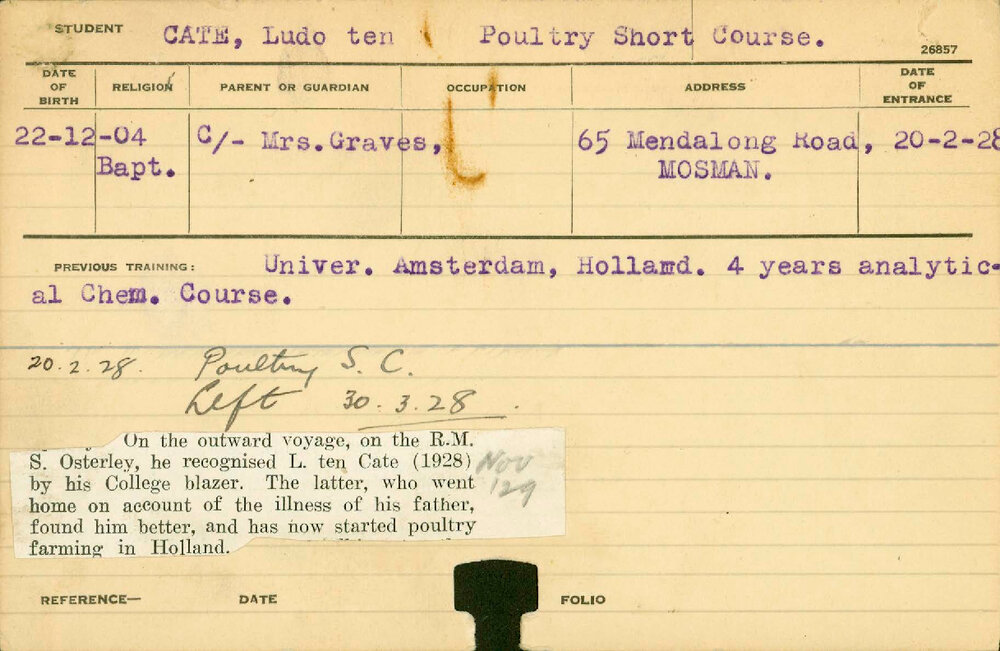 STUDENT CATE, Ludo ten Poultry Short Course.
26857
DATE OF BIRTH RELIGION PARENT OR GUARDIAN OCCUPATION ADDRESS DATE OF ENTRANCE
22-12-04 C/- Mrs.Graves, 65 Mendalong Road, 20-2-28
Bapt. MOSMAN.
PREVIOUS TRAINING: Univer. Amsterdam, Holland. 4 years analytic-
al Chem. Course.
20.2.28. Poultry S. C.
Left 30.3.28.
On the outward voyage, on the R.M.
S. Osterley, he recognised L. ten Cate (1928) Nov
by his College blazer. The latter, who went '29
home on account of the illness of his father,
found him better, and has now started poultry
farming in Holland.
REFERENCE— DATE FOLIO